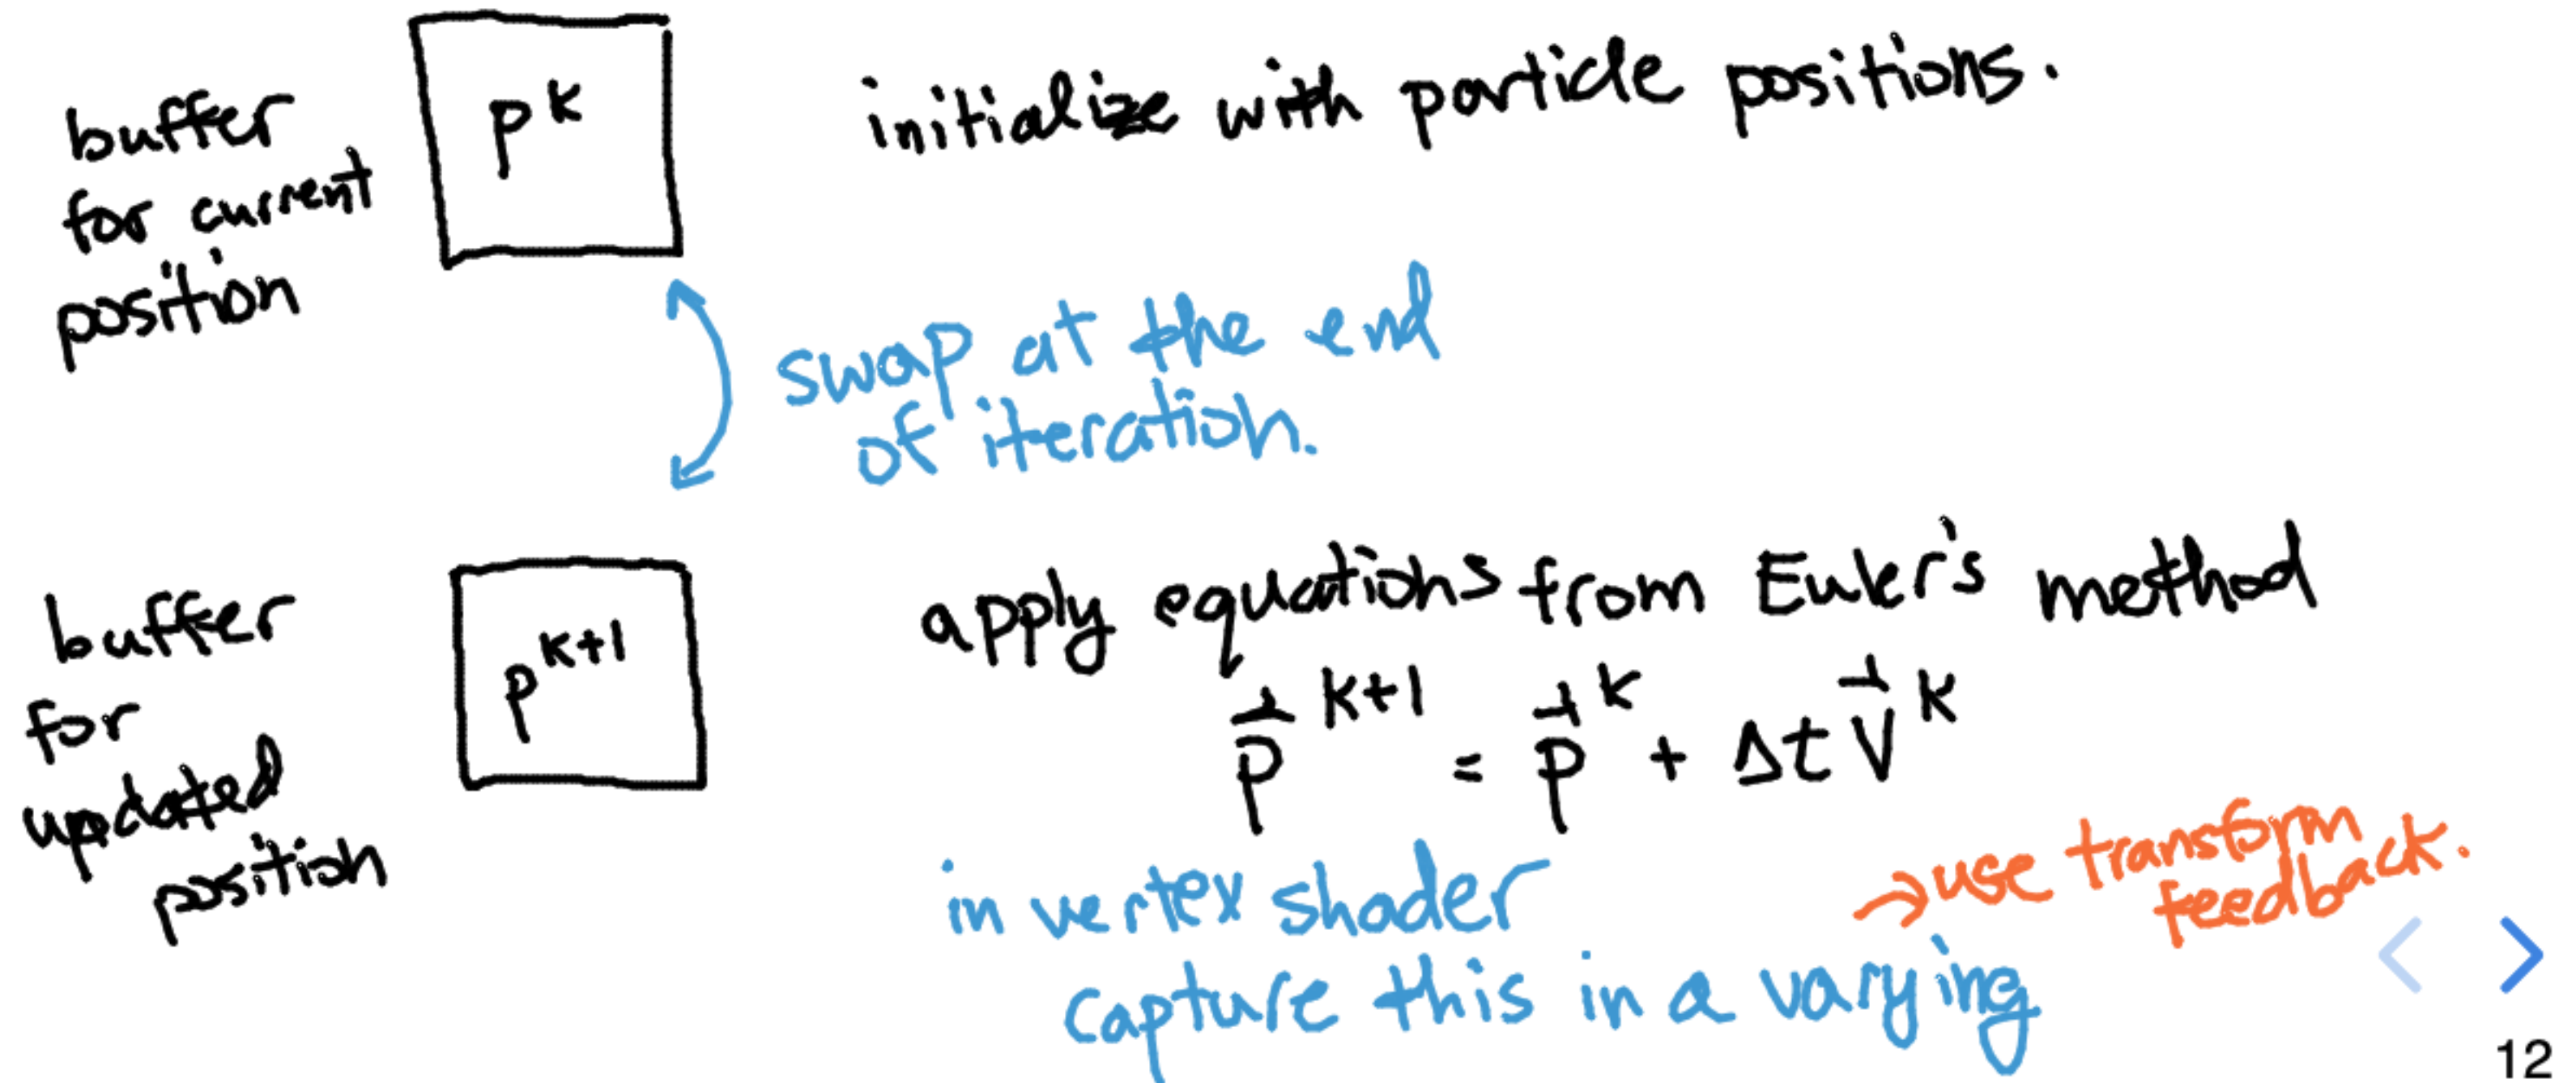 buffer
for current
position
p^k
initialize with particle positions.
swap at the end
of iteration.
buffer
for
updated
position
p^{k+1}
apply equations from Euler's method
p⃗^{k+1} = p⃗^k + Δt v⃗^k
in vertex shader
capture this in a varying
→ use transform
feedback.
12